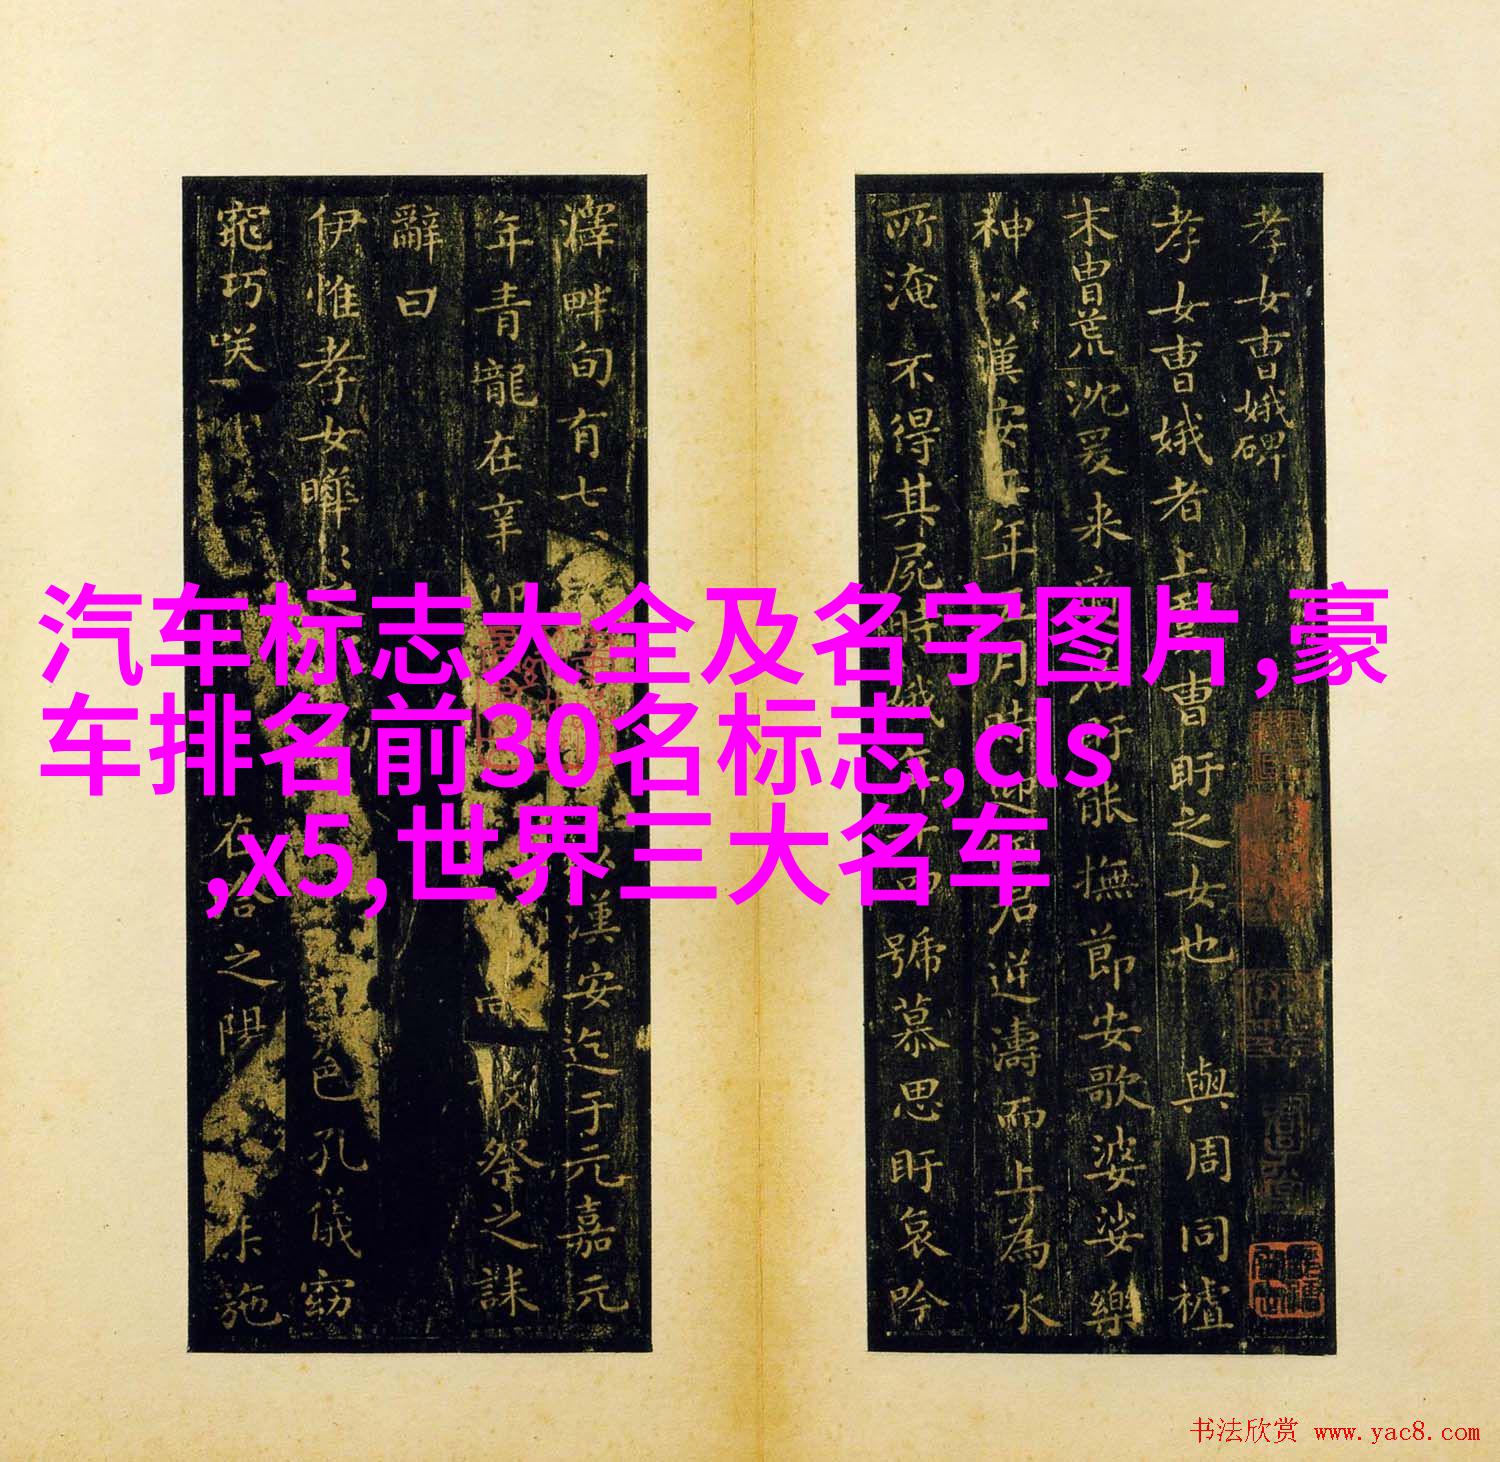 孝女曹娥碑
孝女曹娥者上虞曹盱之女也 與周同禇
末胄荒沈爰来 能撫節安歌婆娑樂
神以漢安 年 月時迎 君逆濤而上為水
所淹不得其屍時 號慕思盱哀吟
澤畔旬有七 漢安迄于元嘉元
年青龍在辛卯 祭之誄
辭曰
伊惟孝女曄 色孔儀窈
窕巧咲 之陽 施
汽车标志大全及名字图片,豪
车排名前30名标志,cls
,x5,世界三大名车
书法欣赏 www.yac8.com